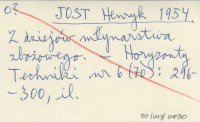 o? JOST Henryk 1954.
Z dziejów młynarstwa
zbożowego. - Horyzonty
Techniki nr 6 (70): 296-
-300, il.